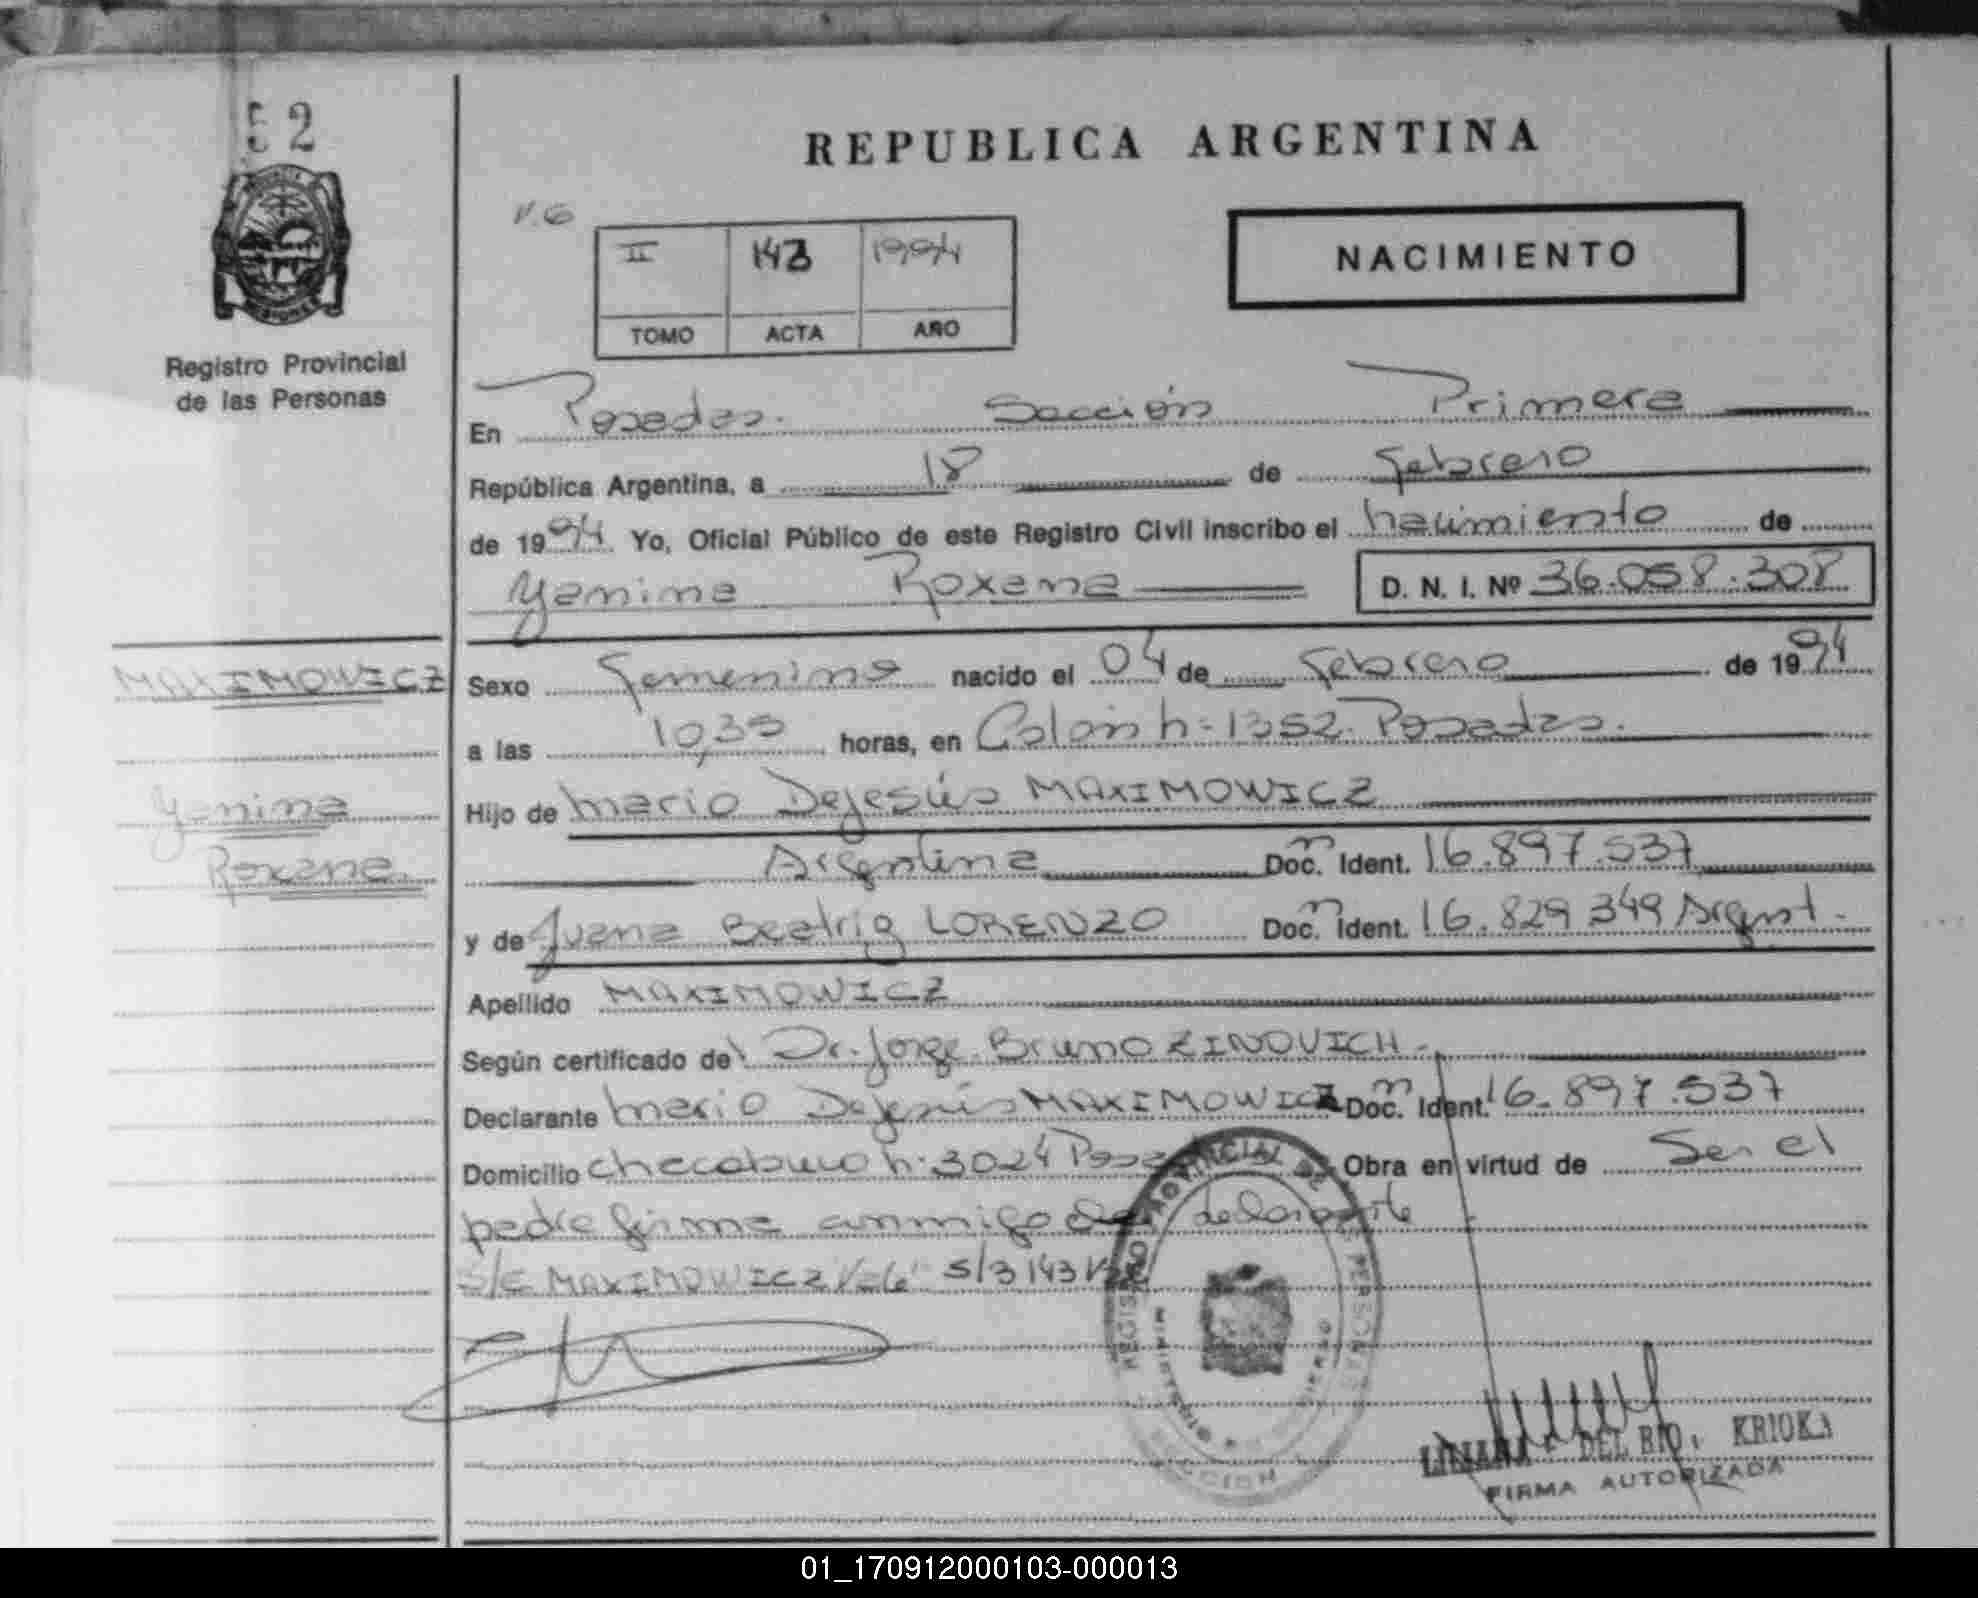 52
REPUBLICA ARGENTINA
V.G
II 143 1994
TOMO ACTA AÑO
NACIMIENTO
Registro Provincial
de las Personas
En Posadas. Sección Primera
República Argentina, a 18 de Febrero
de 1994. Yo, Oficial Público de este Registro Civil inscribo el nacimiento de
Yanina Roxana D. N. I. Nº 36.058.308
MAXIMOWICZ
Yanina
Roxana.
Sexo Femenino nacido el 04 de Febrero de 1994
a las 10,35 horas, en Colón n-1352-Posadas.
Hijo de Mario Dejesús MAXIMOWICZ
Argentina Doc. Ident. 16.897.537
y de Juana Beatriz LORENZO Doc. Ident. 16.829 349 Argent.
Apellido MAXIMOWICZ
Según certificado del Dr. Jorge Bruno ZINOVICH-
Declarante Mario Dejesús MAXIMOWICZ Doc. Ident. 16.897.537
Domicilio Chacabuco n. 3024 Obra en virtud de Ser el
padre firma conmigo el declarante
S/E MAXIMOWICZ S/3 143
REGISTRO PROVINCIAL DE LAS PERSONAS
MINISTERIO DE GOBIERNO
SECCION
DEL RIO, KRIOKA
FIRMA AUTORIZADA
01_170912000103-000013